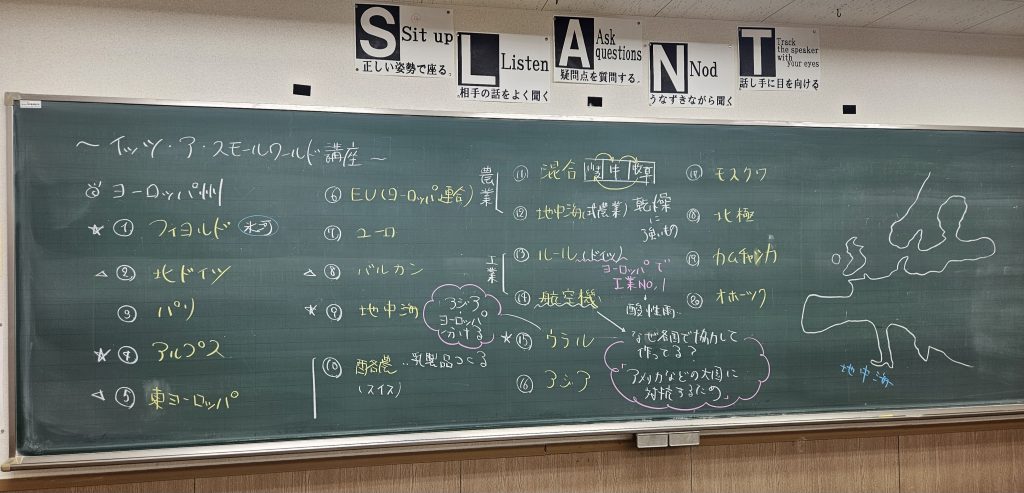 S Sit up
正しい姿勢で座る。
L Listen
相手の話をよく聞く
A Ask questions
疑問点を質問する。
N Nod
うなずきながら聞く
T Track the speaker with your eyes
話し手に目を向ける
～イッツ・ア・スモールワールド講座～
ヨーロッパ州
☆ ① フィヨルド 氷河
△ ② 北ドイツ
③ パリ
★ ④ アルプス
△ ⑤ 東ヨーロッパ
⑥ EU(ヨーロッパ連合)
⑦ ユーロ
△ ⑧ バルカン
★ ⑨ 地中海
⑩ 酪農 乳製品つくる
(スイス)
アジア、
ヨーロッパ
わける
農業
⑪ 混合
⑫ 地中海(式農業) 乾燥
に
強いもの
工業
⑬ ルール(ドイツ)
ヨーロッパで
工業NO,1
酸性雨
⑭ 航空機
★ ⑮ ウラル
⑯ アジア
なぜ各国で協力して
作ってる?
「アメリカなどの大国に
対抗するため」
モスクワ
⑱ 北極
⑲ カムチャツカ
⑳ オホーツク
地中海